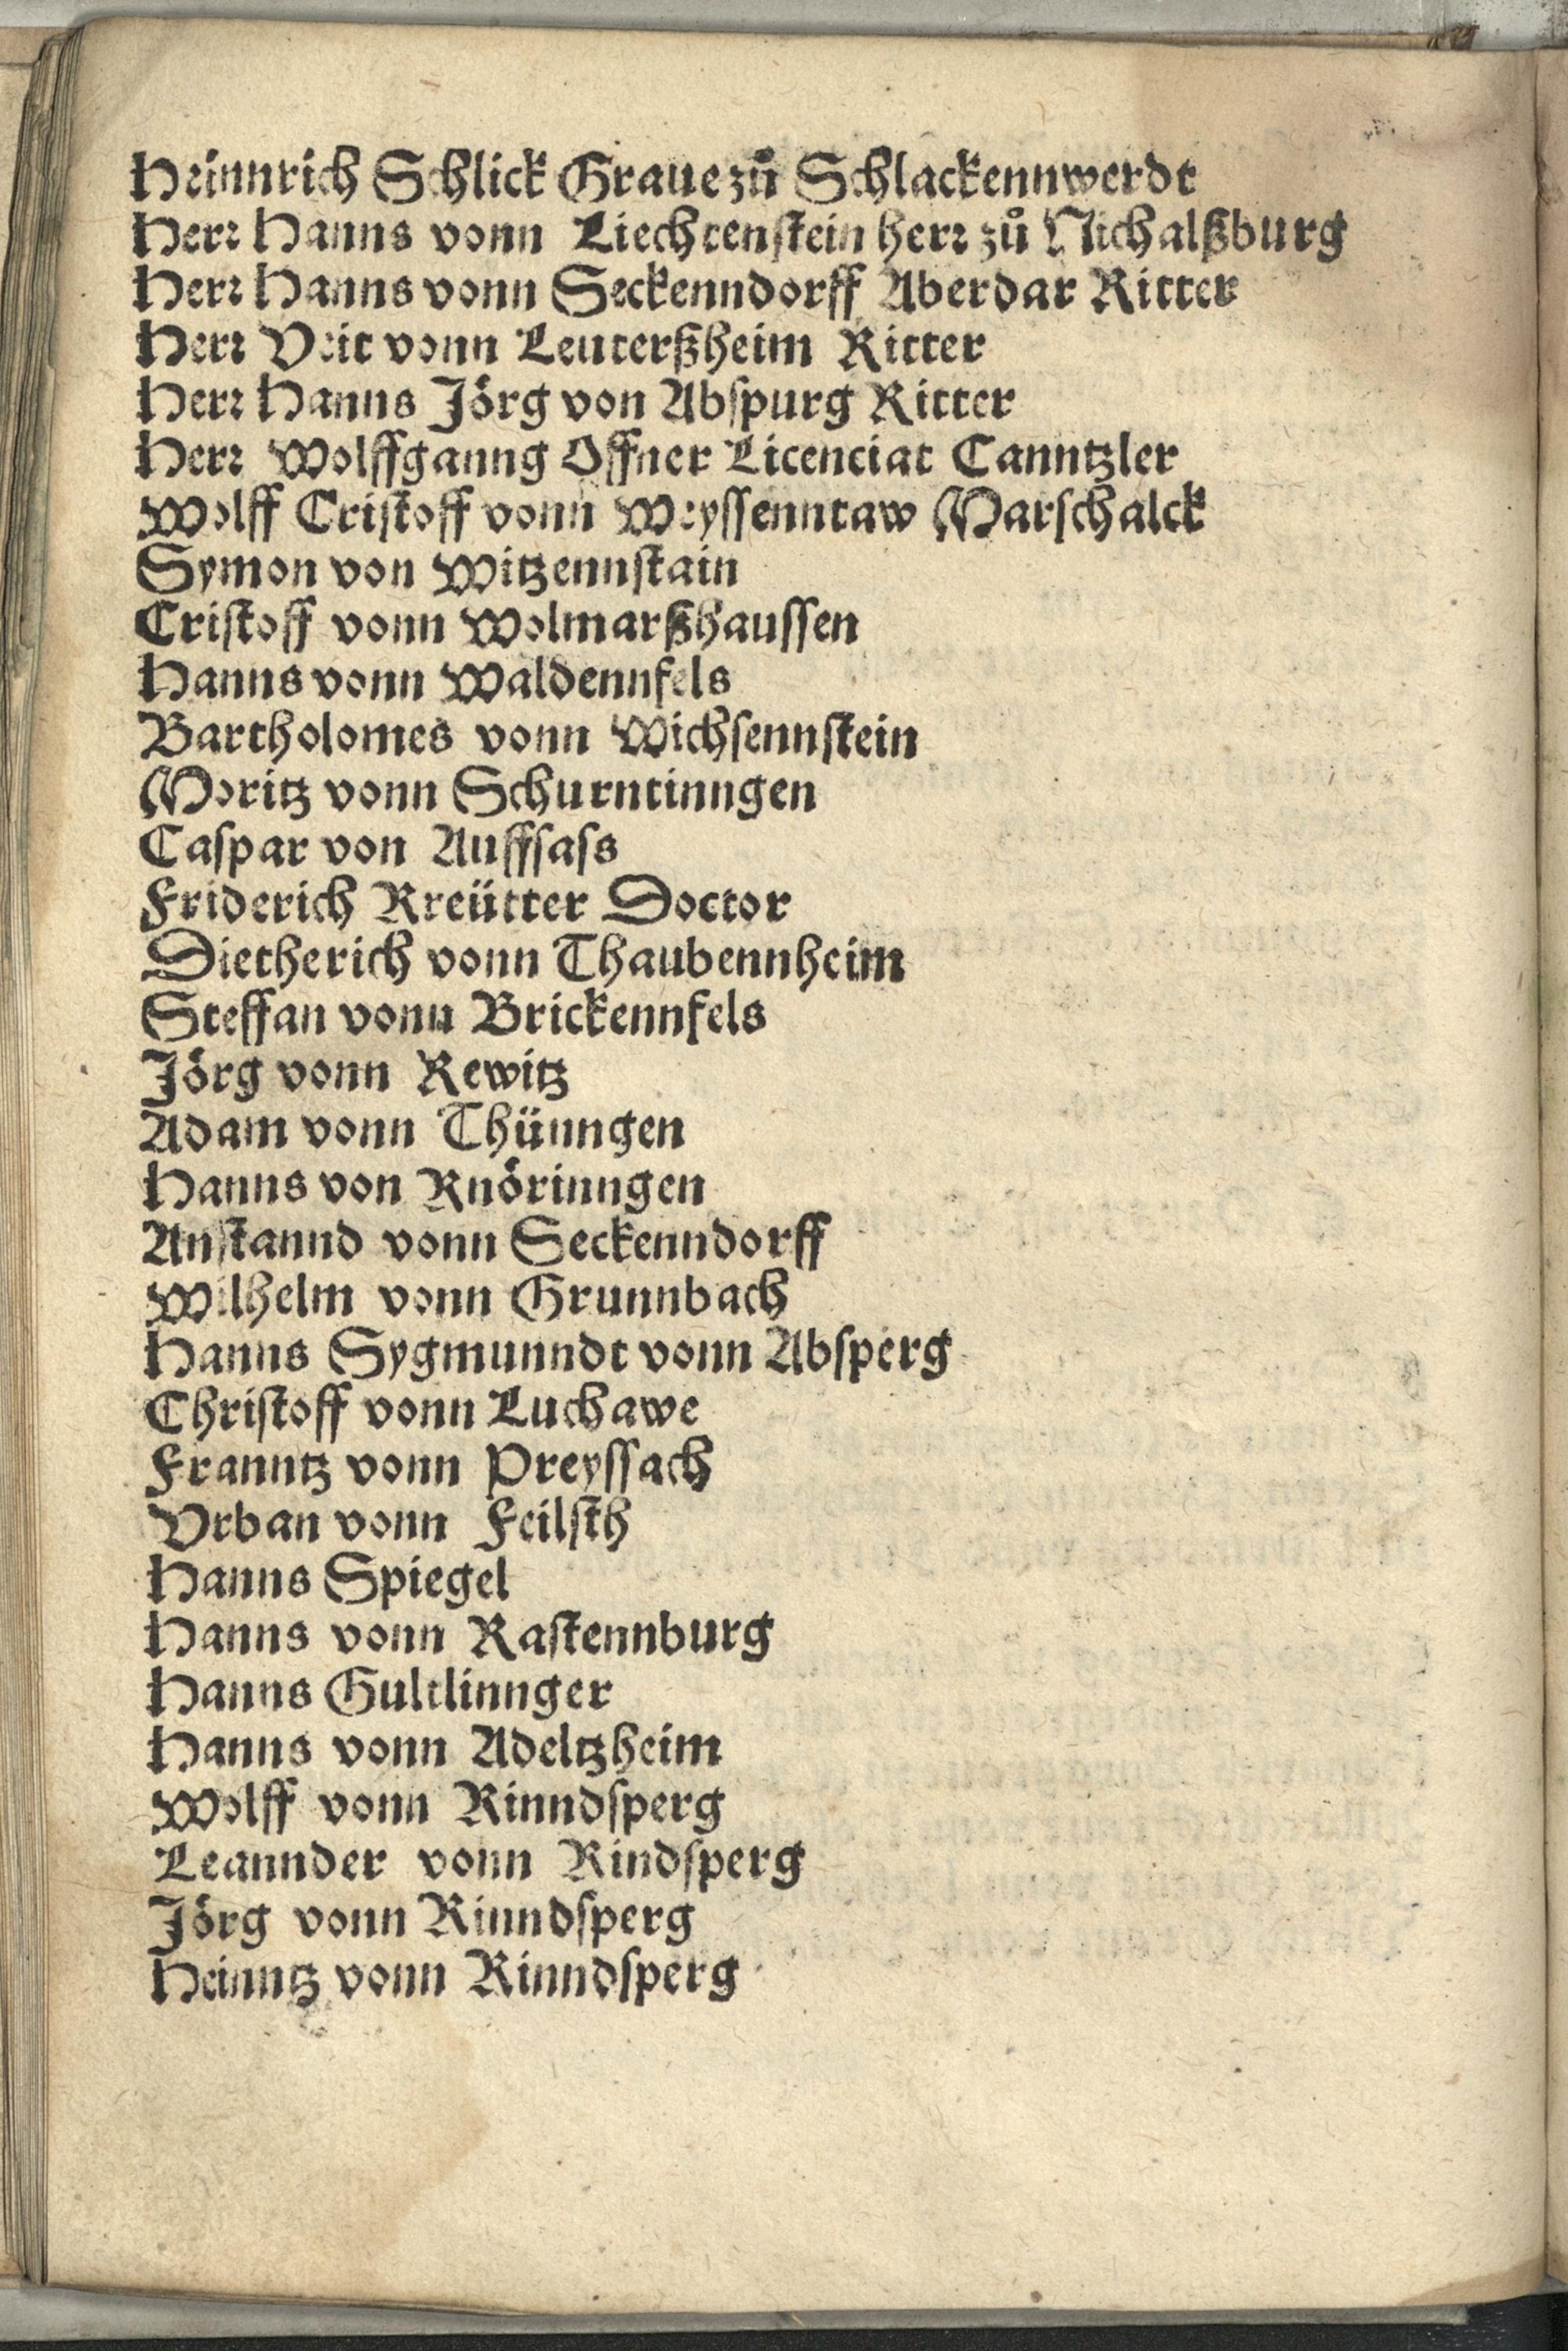 Heinnrich Schlick Graue zů Schlackennwerdt
Herr Hanns vonn Liechtenstein herr zů Nichalßburg
Herr Hanns vonn Seckenndorff Aberdar Ritter
Herr Veit vonn Leuterßheim Ritter
Herr Hanns Jörg von Abspurg Ritter
Herr Wolffganng Offner Licenciat Canntzler
Wolff Cristoff vonn Weyssenntaw Marschalck
Symon von Witzennstain
Cristoff vonn Wolmarßhaussen
Hanns vonn Waldennfels
Bartholomes vonn Wichsennstein
Moritz vonn Schurntinngen
Caspar von Auffsass
Friderich Kreütter Doctor
Dietherich vonn Thaubennheim
Steffan vonn Brickennfels
Jörg vonn Rewitz
Adam vonn Thünngen
Hanns von Knörinngen
Anstannd vonn Seckenndorff
Wilhelm vonn Grunnbach
Hanns Sygmunndt vonn Absperg
Christoff vonn Luchawe
Franntz vonn Preyssach
Vrban vonn Feilsth
Hanns Spiegel
Hanns vonn Rastennburg
Hanns Gultlinnger
Hanns vonn Adeltzheim
Wolff vonn Rinndsperg
Leannder vonn Rindsperg
Jörg vonn Rinndsperg
Heinntz vonn Rinndsperg